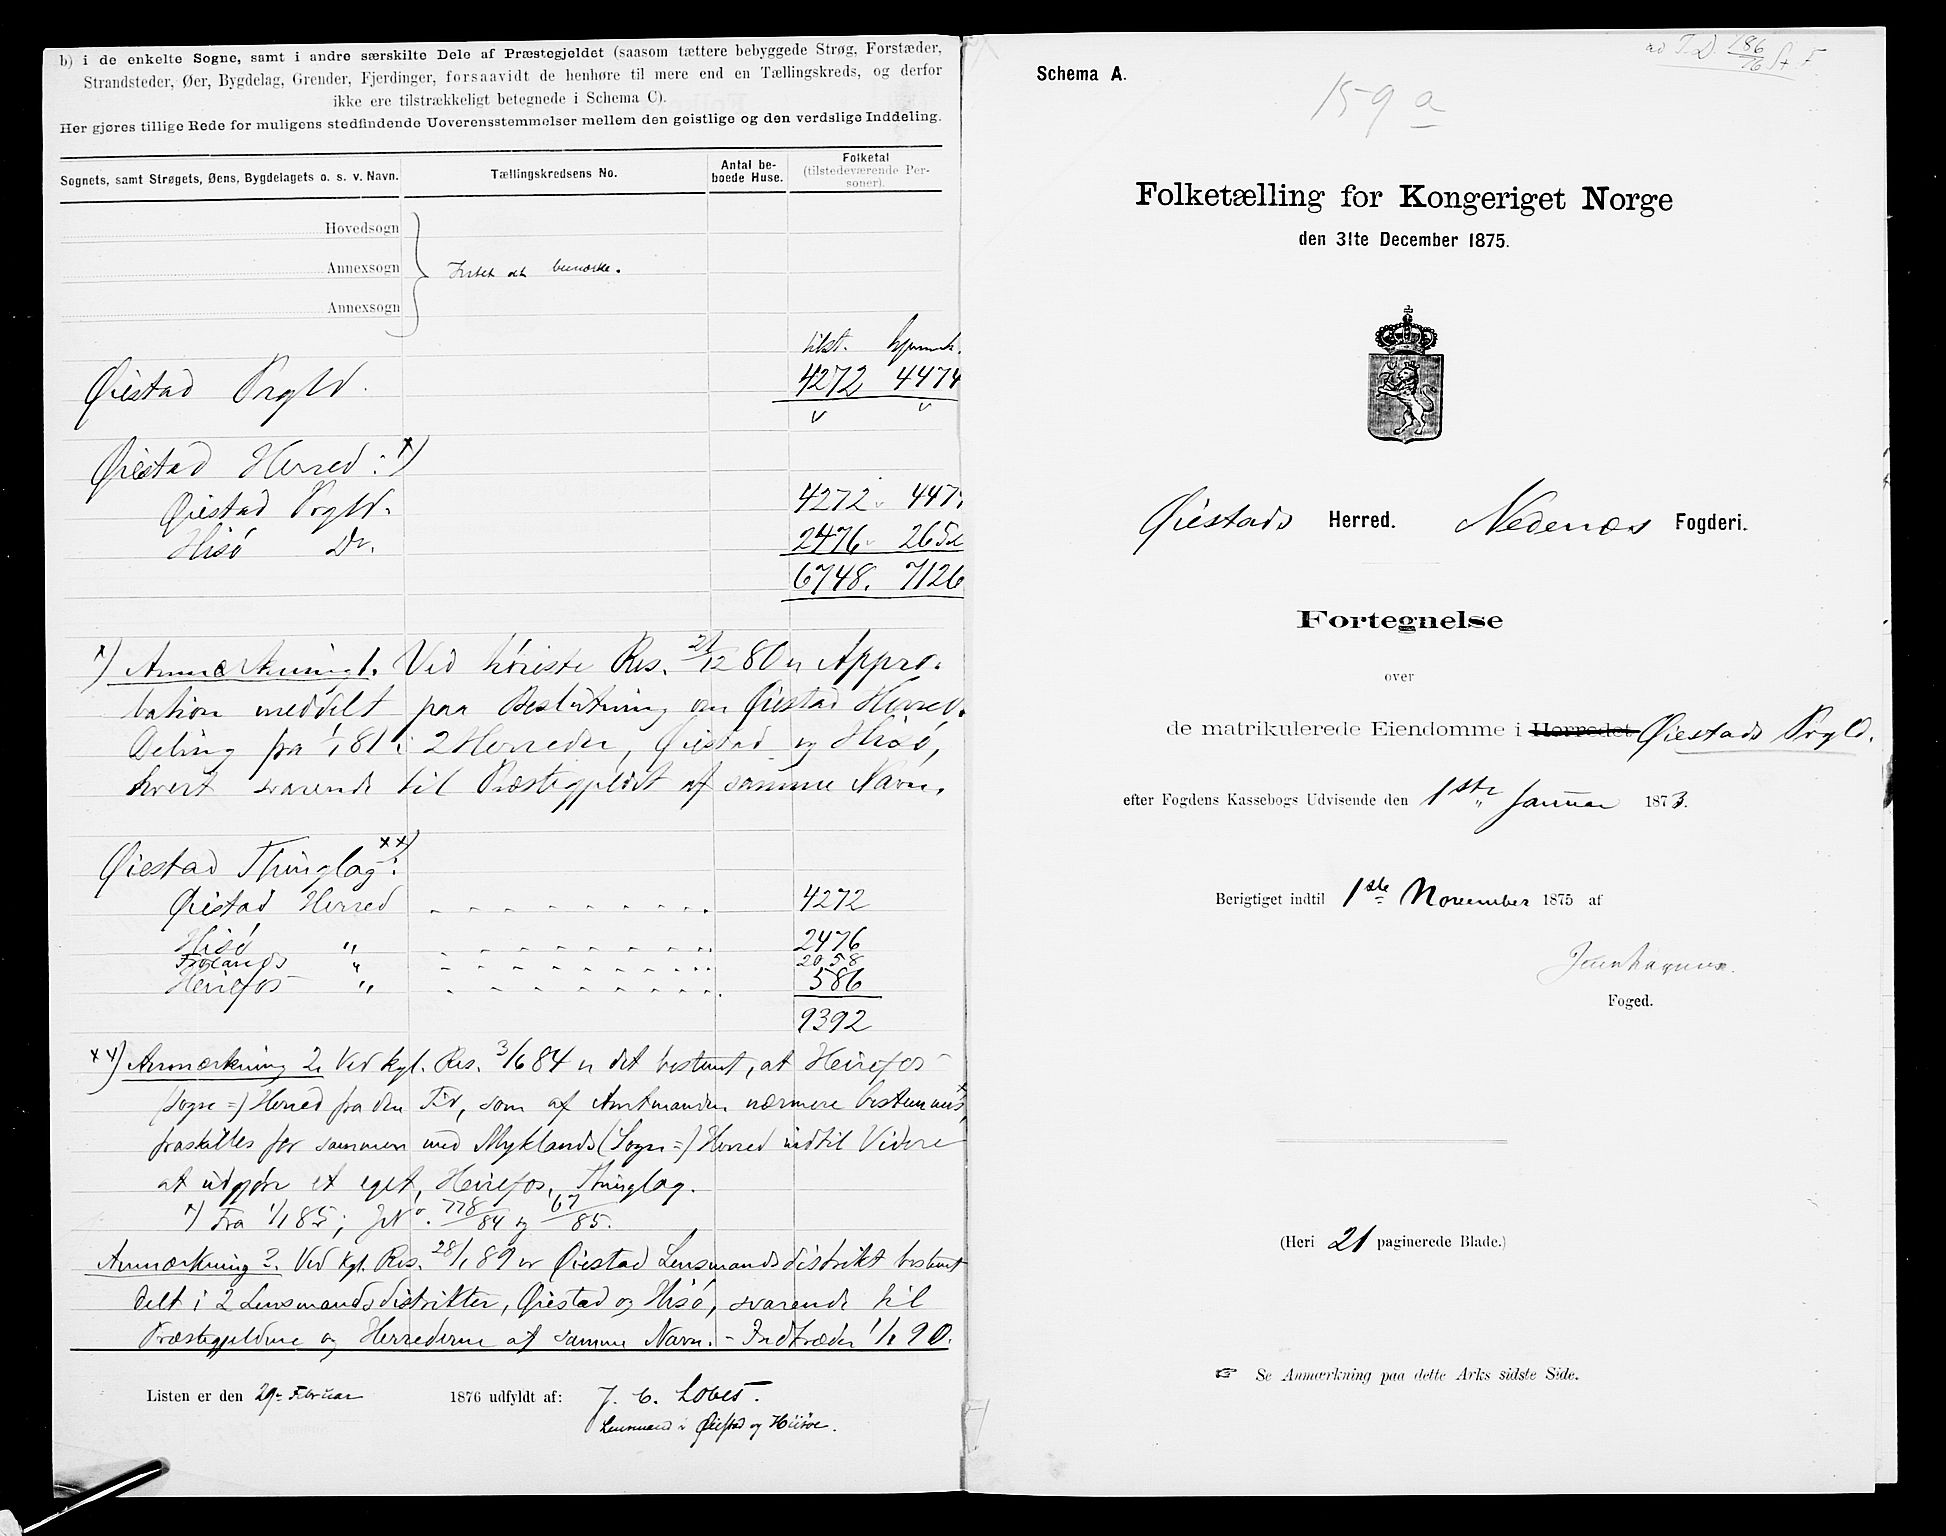 b) i de enkelte Sogne, samt i andre særskilte Dele af Præstegjeldet (saasom tættere bebyggede Strøg, Forstæder,
Strandsteder, Øer, Bygdelag, Grender, Fjerdinger, forsaavidt de henhøre til mere end en Tællingskreds, og derfor
ikke ere tilstrækkeligt betegnede i Schema C).
Her gjøres tillige Rede for muligens stedfindende Uoverensstemmelser mellem den geistlige og den verdslige Inddeling.
Sognets, samt Strøgets, Øens, Bygdelagets o. s. v. Navn.
Tællingskredsens No.
Antal be-
boede Huse.
Folketal
(tilstedeværende Per-
soner).
Hovedsogn
Annexsogn
Annexsogn
Intet at bemærke.
tilst. hjemmh.
Øiestad Prgld. 4272 4474
Øiestad Herred: x)
Øiestad Prgld. 4272 447
Hisö Do. 2476 265
6748. 7126
x) Anmærkning 1. Ved höieste Res. 21/12 80 er Appro-
bation meddelt paa Beslutning om Øiestad Herreds
Deling fra 1/1 81 i 2 Herreder, Øiestad og Hisö,
hvert svarende til Præstegjeldet af samme Navn.
Øiestad Thinglag: xx)
Øiestad Herred 4272
Hisö " 2476
Frolands " 2058
Heirefos " 586
9392
xx) Anmærkning 2. Ved kgl. Res. 3/6 84 er det bestemt, at Heirefos
Sogne =) Herred fra den Tid, som af Amtmanden nærmere bestemmes, x
fraskilles for sammen med Myklands (Sogne =) Herred indtil Videre
at udgjöre et eget, Heirefos, Thinglag.
x) Fra 1/1 85; JNo. 778/84 og 67/85.
Anmærkning 3. Ved Kgl. Res. 28/1 89 er Øiestad Lensmandsdistrikt bestemt
delt i 2 Lensmandsdistrikter, Øiestad og Hisö, svarende til
Præstegjeldene og Herrederne af samme Navn. - Indtræder 1/1 90.
Listen er den 29de Februar 1876 udfyldt af: J. C.
Lensmand i Øiestad og Hisöe.
Schema A.
ad T.D. 186/76 St. F
159 a
Folketælling for Kongeriget Norge
den 31te December 1875.
Øiestads Herred. Nedenæs Fogderi.
Fortegnelse
over
de matrikulerede Eiendomme i Herredet Øiestads Prgld.
efter Fogdens Kassebogs Udvisende den 1ste Januar 1873.
Berigtiget indtil 1ste November 1875 af
Foged.
(Heri 21 paginerede Blade.)
☞ Se Anmærkning paa dette Arks sidste Side.